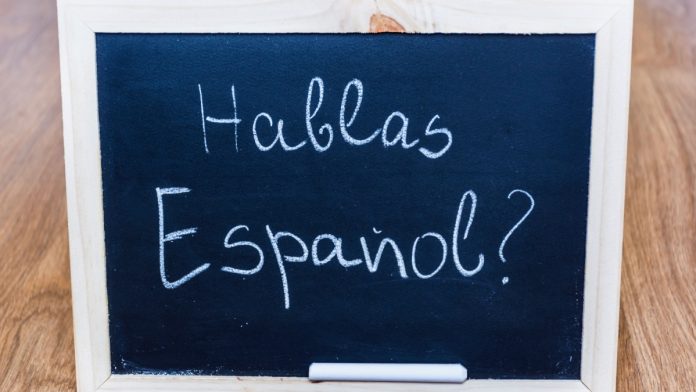 Hablas
Español?